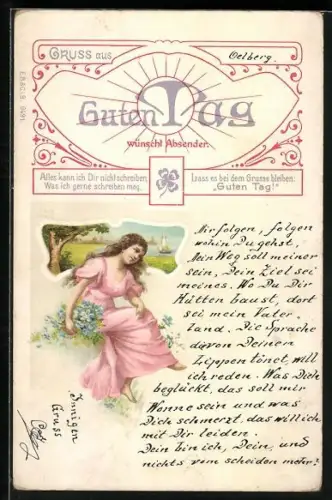 GRUSS aus Oelberg.
Guten Tag
wünscht Absender.
Alles kann ich Dir nicht schreiben,
Was ich gerne schreiben mag,
Lass es bei dem Grusse bleiben:
„Guten Tag!“
Mir folgen, folgen
wohin Du gehst,
Dein Weg soll meiner
sein, Dein Ziel sei
meines. Wo Du Dir
Hütten baust, dort
sei mein Vater-
land. Die Sprache
die von Deinen
Lippen tönet, will
ich reden. Was Dich
beglückt, das soll mir
Wonne sein und was
Dich schmerzt das will ich
mit Dir leiden.
Dein bin ich, Dein, und
nichts vom scheiden mehr!
Innigen
Gruss